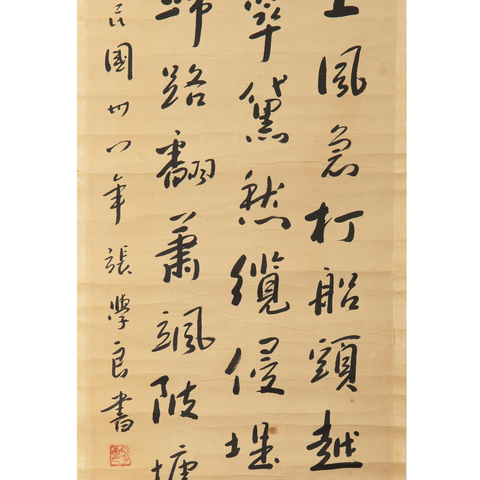 上風急打船頭越
翠黛愁纜侵堤
歸路翻蕭颯陂塘
民國卅八年 張學良書